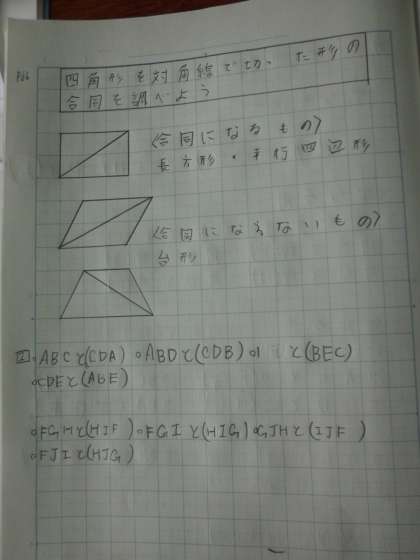 P26
四角形を対角線で切った形の
合同を調べよう
〈合同になるもの〉
長方形・平行四辺形
〈合同にならないもの〉
台形
② ○ABCと(CDA) ○ABDと(CDB) ○ と(BEC)
○CDEと(ABE)
○FGHと(HJF) ○FGIと(HIG) ○GJHと(IJF)
○FJIと(HJG)